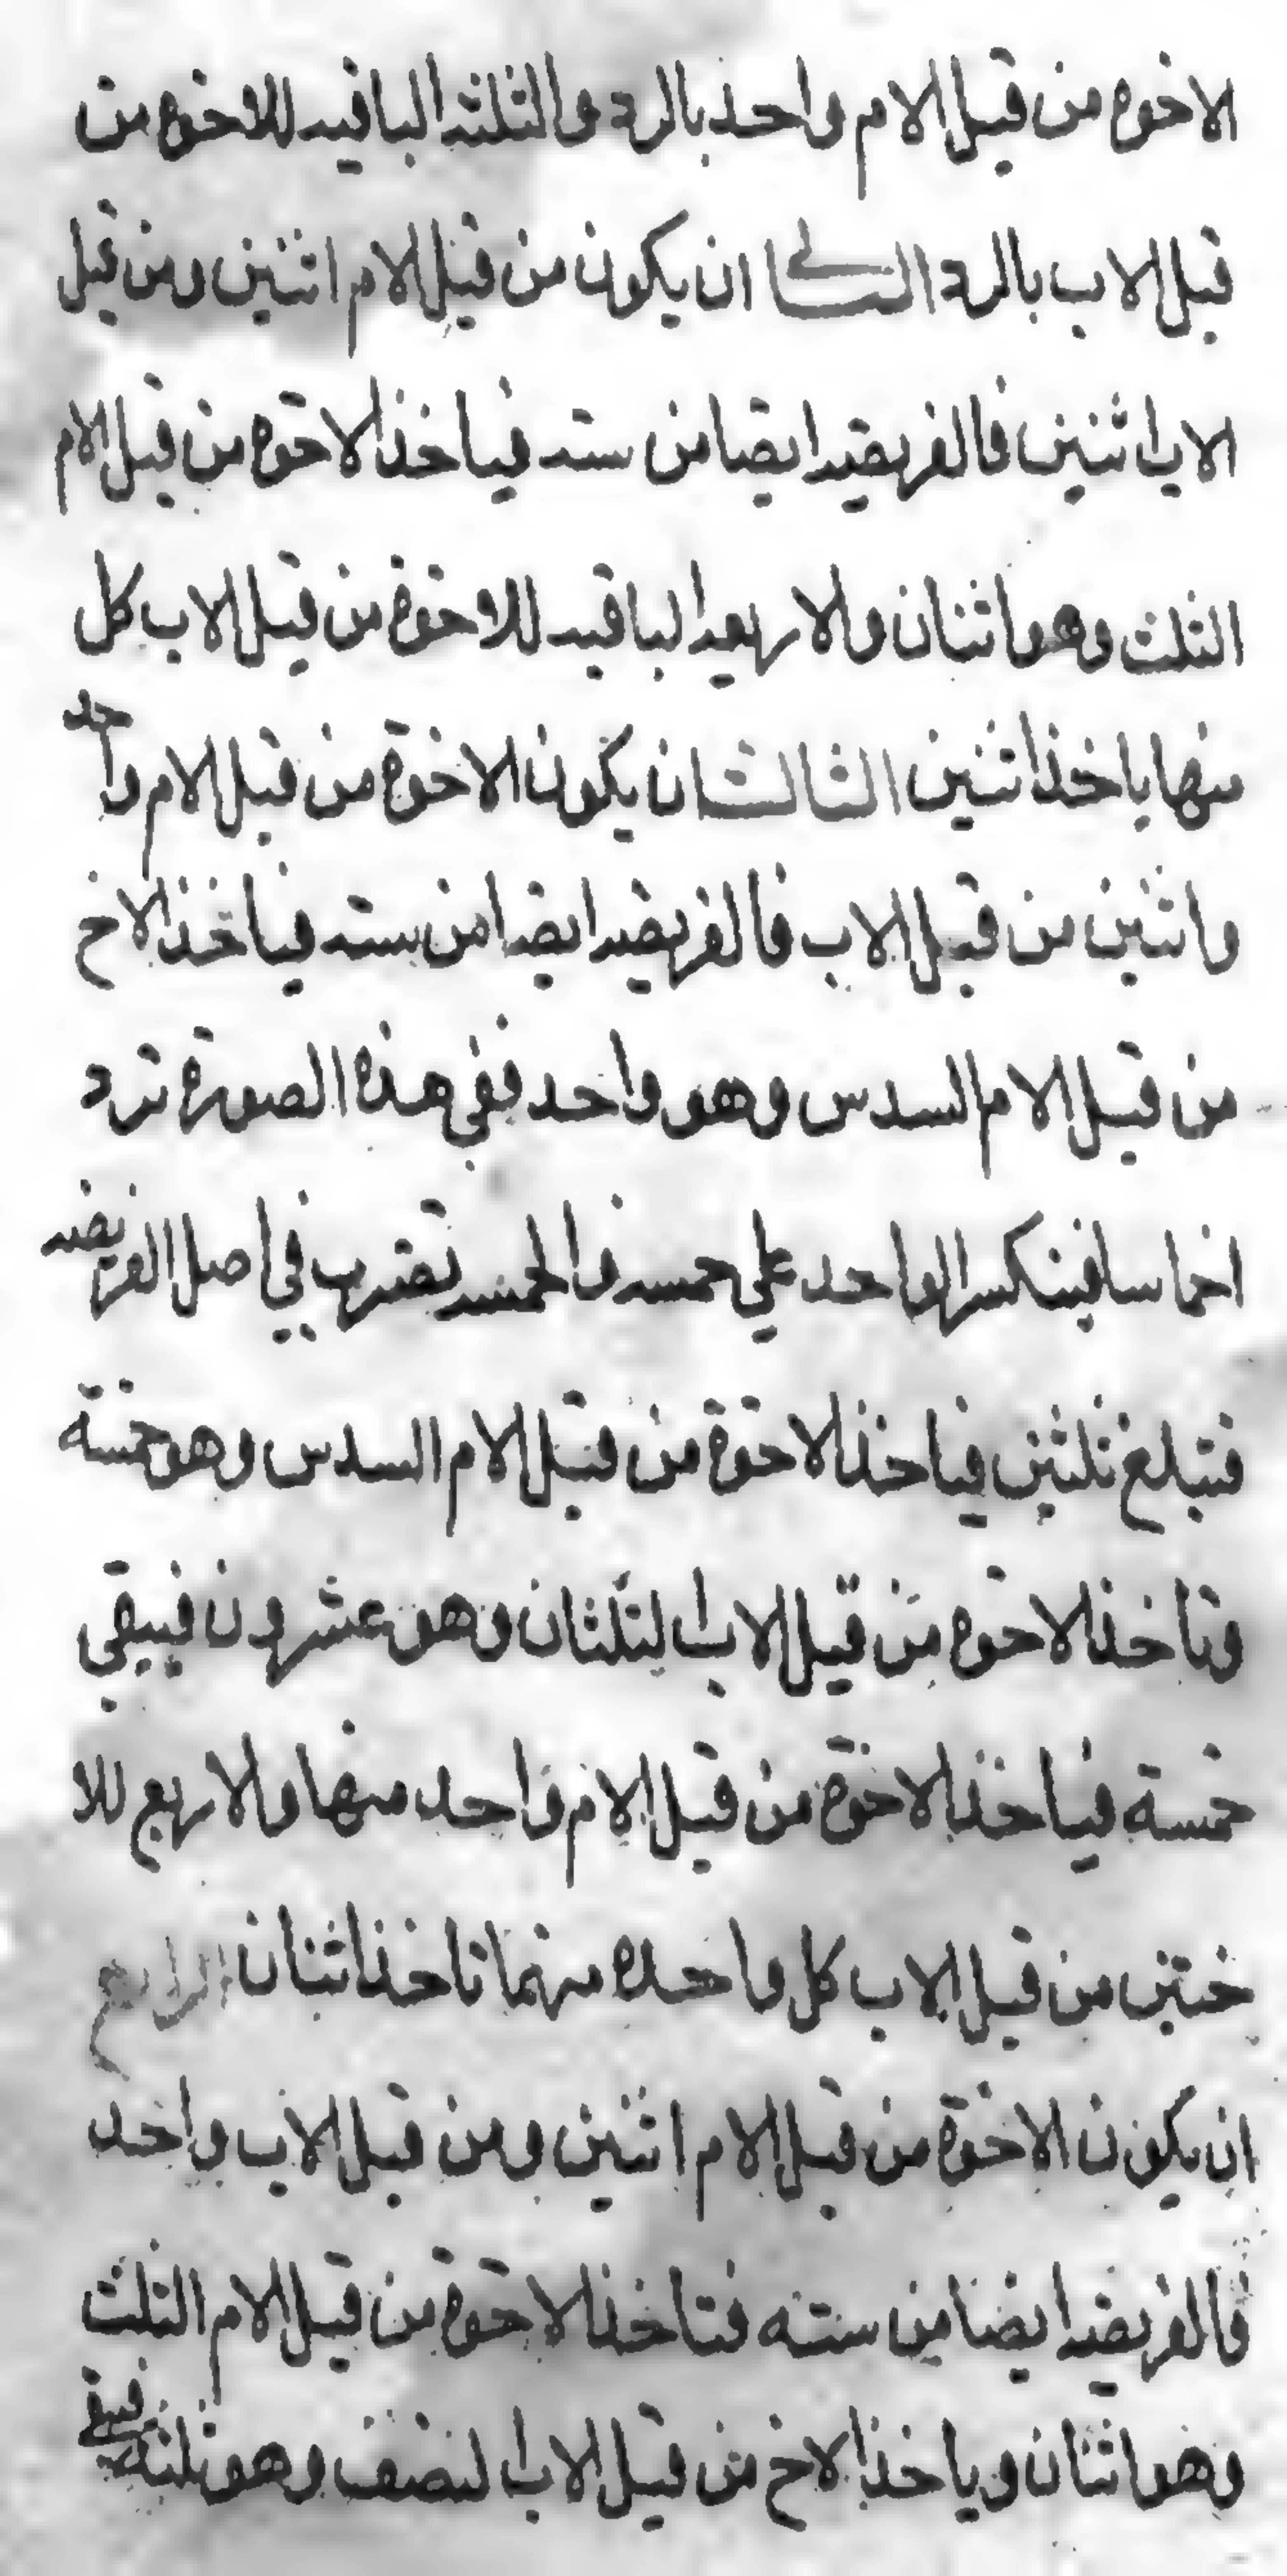 الاخوه من قبل الام واحد بالرد والثلثه الباقيه للاخوه من
قبل الاب بالرد الثاني ان يكون من قبل الام اثنين ومن قبل
الاب اثنين فالفريضه ايضا من سته فياخذ الاخوه من قبل الام
الثلث وهو اثنان والاربعه الباقيه للاخوة من قبل الاب كل
منها ياخذ اثنين الثالث ان يكون الاخوة من قبل الام واحد
واثنين من قبل الاب فالفريضه ايضا من سته فياخذ الاخ
من قبل الام السدس وهو واحد ففي هذه الصورة ترد
اخماسا فينكسر الواحد علي خمسه فالخمسه تضرب في اصل الفريضه
فتبلغ ثلثين فياخذ الاخوة من قبل الام السدس وهو خمسة
وتاخذ الاخوه من قبل الاب الثلثان وهو عشرون فيبقي
خمسة فياخذ الاخوة من قبل الام واحد منها والاربع للا
ختين من قبل الاب كل واحده منهما تاخذ اثنان الرابع
ان يكون الاخوة من قبل الام اثنين ومن قبل الاب واحد
فالفريضه ايضا من سته فتاخذ الاخوة من قبل الام الثلث
وهو اثنان وياخذ الاخ من قبل الاب النصف وهو ثلثه فيبقي